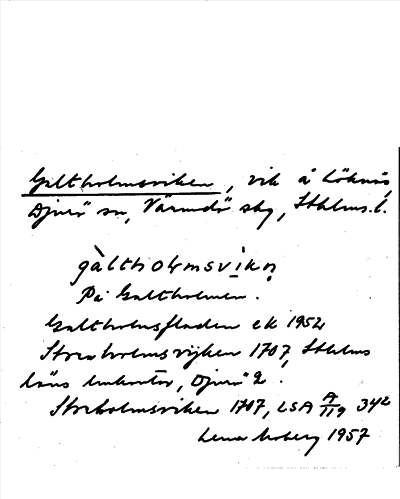 Galtholmsviken, vik å Löknäs,
Djurö sn, Värmdö skg, Sthlms l.
gàltholmsvikn
På Galtholmen.
Galtholmsfladen ek 1952
Storeholmsvijken 1707, Sthlms
läns lmkontor, Djurö 2.
Storholmsviken 1707, LSA A/119 342
Lena Moberg 1957